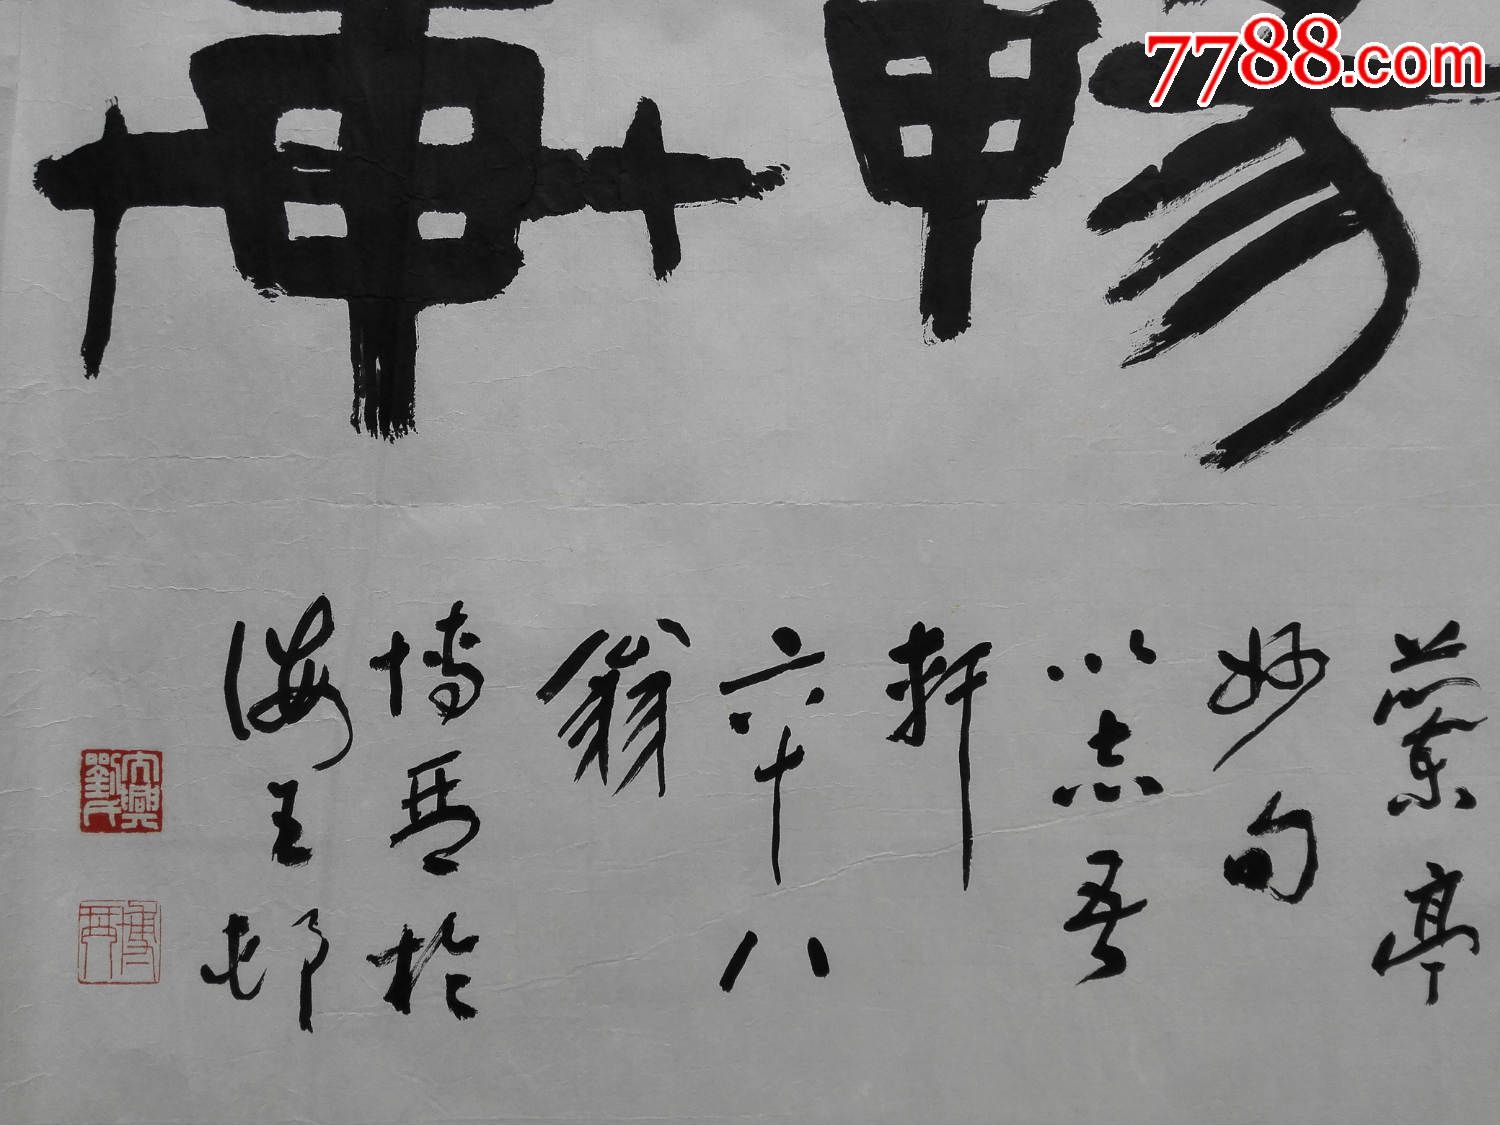 暢
蘭亭
妙句
以志吾
軒
六十八
翁
博琴於
海王邨
大興劉氏
博琴
7788.com